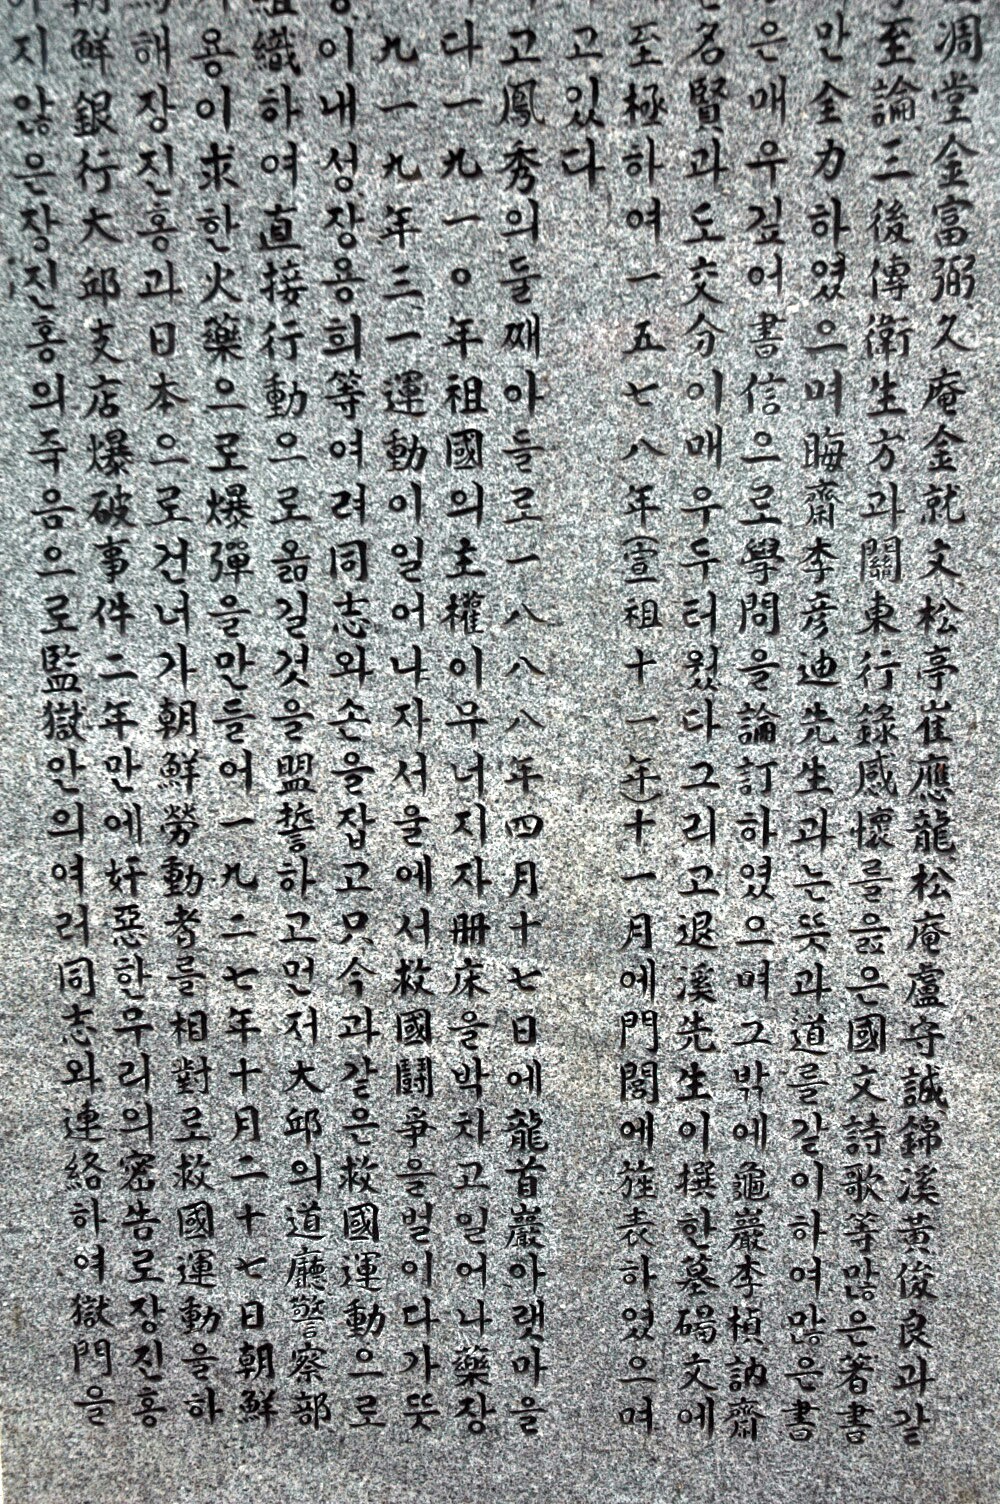 凋堂金富弼久庵金就文松亭崔應龍松庵盧守誠錦溪黃俊良과같
至論三後傳衛生方과關東行錄感懷를읊은國文詩歌等많은著書
만全力하였으며晦齋李彦迪先生과는뜻과道를같이하여많은書
은매우깊어書信으로學問을論訂하였으며그밖에龜巖李楨訥齋
名賢과도交分이매우두터웠다그리고退溪先生이撰한墓碣文에
至極하여一五七八年(宣祖十一年)十一月에門閭에旌表하였으며
고있다
고鳳秀의둘째아들로一八八八年四月十七日에龍首巖아랫마을
다一九一〇年祖國의主權이무너지자冊床을박차고일어나藥장
九一九年三一運動이일어나자서울에서救國鬪爭을벌이다가뜻
이내성장용희等여려同志와손을잡고只今과같은救國運動으로
織하여直接行動으로옮길것을盟誓하고먼저大邱의道廳警察部
용이求한火藥으로爆彈을만들어一九二七年十月二十七日朝鮮
해장진홍과日本으로건너가朝鮮勞動者를相對로救國運動을하
鮮銀行大邱支店爆破事件二年만에奸惡한우리의密告로장진홍
지않은장진홍의죽음으로監獄안의여러同志와連絡하여獄門을